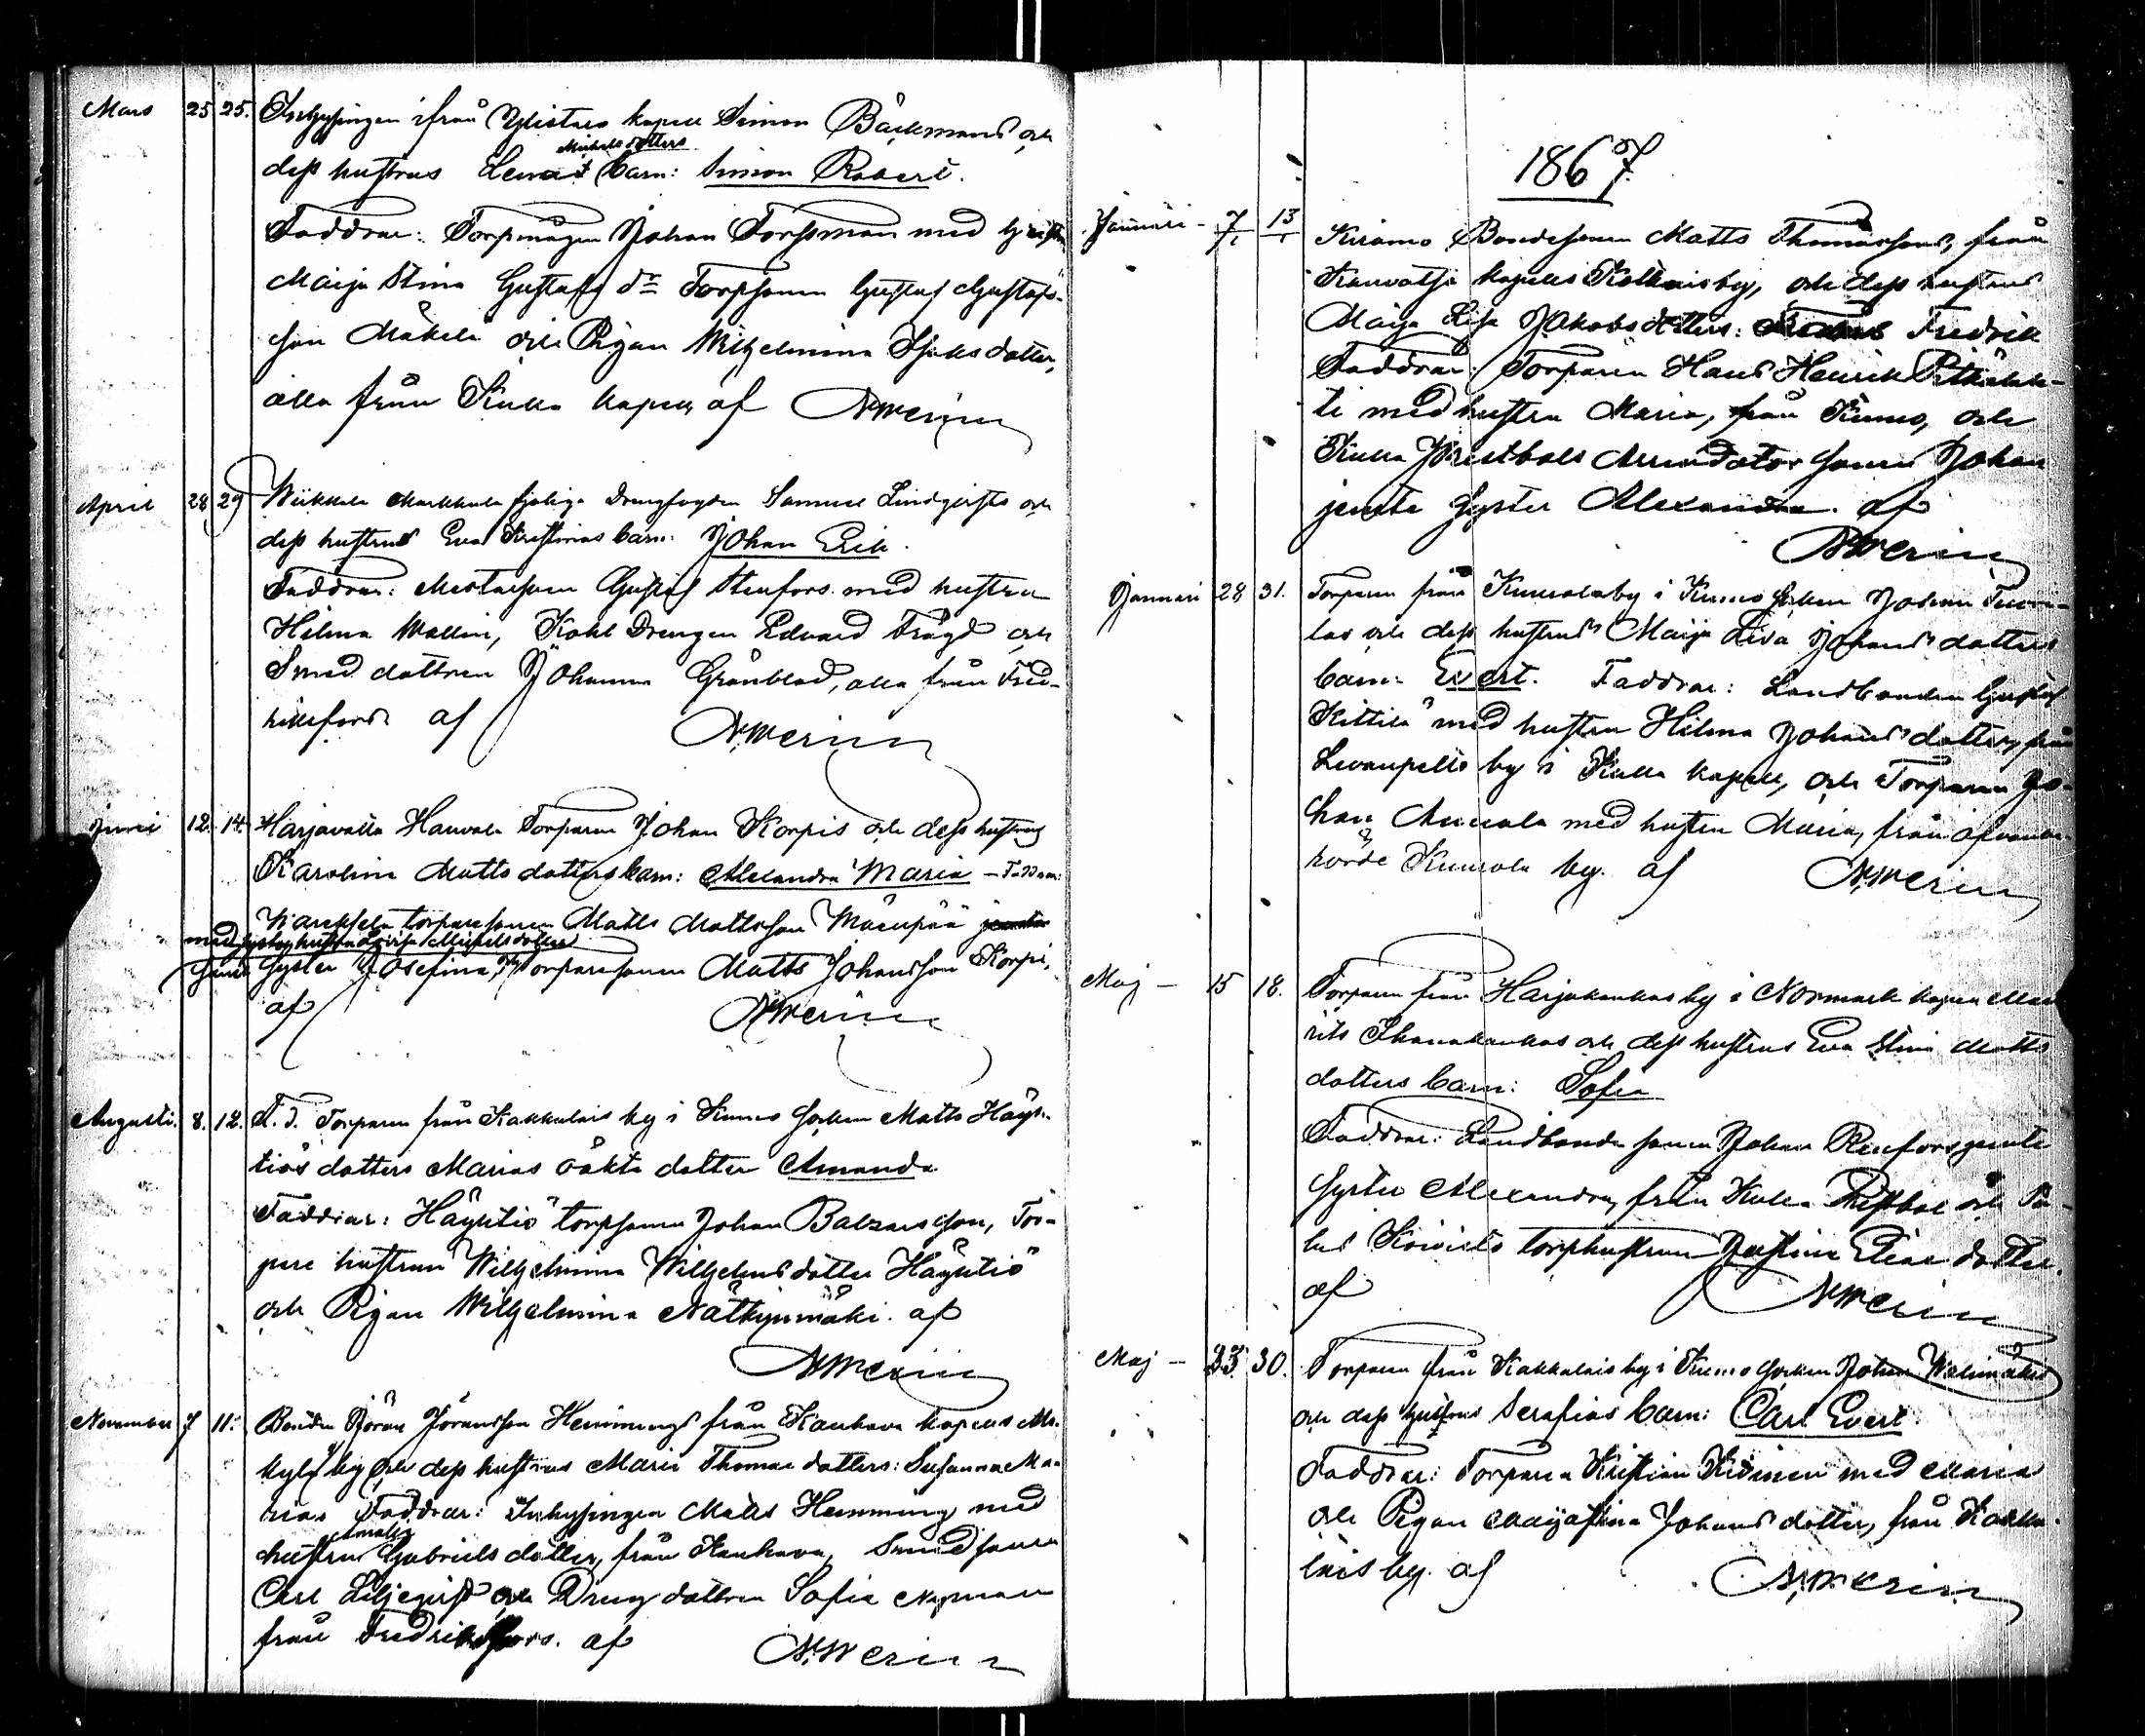 Mars 25 25. Inhysingen ifrån Ylistaro kapell Simon Bäckmans och
Michelsdotters
dess hustrus Lena barn: Simon Robert.
Faddrar: Torpmågen Johan Forssman med hustru
Maija Stina Gustafs dr Torpsonen Gustaf Gustafs-
son Mäkelä och Pigan Wilhelmina Isaksdotter,
alla från Kulla kapell af N. Merin
April 28 29 Markkula Drengfogden Samuel Lindqvists och
dess hustrus Eva Kristinas barn: Johan Erik.
Faddrar: Gustaf Stenfors med hustru
Hilma Wallin, Kohl Drengen Edvard Frägd och
Smed dottren Johanna Grönblad, alla från Fred-
riksfors af N. Merin
Juni 12. 14. Harjavalta Torparen Johan Korpis och dess hustrus
Karolina Matts dotters barn: Alexandra Maria – Faddrar:
torparesonen Matts Mattsson
med hustru Michelsdotter
Syster Josefina, och Torparesonen Matts Johansson Korpi,
af N. Merin
Augusti. 8. 12. F. d. Torparen från Kakkulais by i Kumo socken Matts Häyh-
tiös dotters Marias oäkta dotter Amanda
Faddrar: Häyhtiö torpsonen Johan Balzarsson, Tor-
pare hustrun Wilhelmina Wilhelmsdotter Häyhtiö
och Pigan Wilhelmina Nätkynmäki. af
N. Merin
November 7 11. Bonden Jöran Jöransson Hemmings från Kauhava kapells
kylä by och dess hustrus Maria Thomae dotters: Susanna Ma-
rias Faddrar: Inhysingen Matts Hemming med
Amalia
hustru Gabriels dotter, från Kauhava, Smedsonen
Carl Liljeqvist och Dreng dottren Sofia Nyman
från Fredriksfors. af N. Merin
1867.
Januari – 7 13 Bondesonen Matts Thomassons, från
Kauvatsa kapells by, och dess hustrus
Maija Lisa Jakobsdotters: Fredrik
Faddrar: Torparen Hans Henrik
ti med hustru Maria, från Kumo, och
Kulla Prestbols Arrendator sonen Johan
jemte Syster Alexandra. af
N. Merin
Januari 28 31. Torparen från by i Kumo socken Johan
las och dess hustrus Maija Johansdotters
barn: Evert. Faddrar: Landbonden Gustaf
Kittilä med hustru Hilma Johansdotter, från
Levanpelto by i Kulla kapell, och Torparen Jo-
han med hustru Maria, från
by. af N. Merin
Maj – 15 18. Torparen från Harjakankas by i Norrmark kapell Mau-
rits och dess hustrus Eva Stina Matts
dotters barn: Sofia
Faddrar: Landbonde sonen Johan Renfors jemte
Syster Alexandra, från Kulla Prestbol och
Koivisto torphustrun Justina Elias dotter.
af N. Merin
Maj – 23. 30. Torparen från Kakkulais by i Kumo socken Johan Wälimäkis
och dess hustrus Serafias barn: Carl Evert
Faddrar: Torparen Kristian med Maria
och Pigan Maija Stina Johans dotter, från Kakku-
lais by. af N. Merin